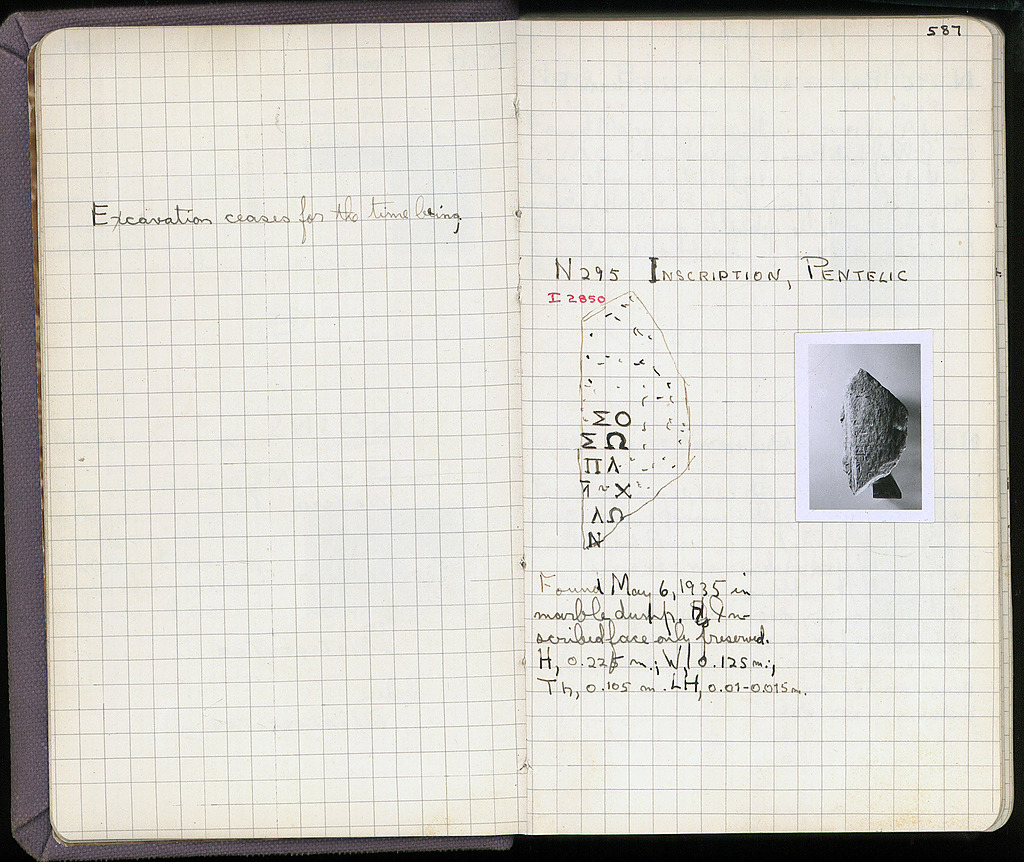 Excavation ceases for the time being
587
N295 INSCRIPTION, PENTELIC
I 2850
ΣΟ
ΣΩ
ΠΛ
Χ
ΛΩ
Ν
Found May 6, 1935 in
marble dump. In-
scribed face only preserved.
H, 0.225 m.; W, 0.125 m.;
Th, 0.105 m. LH, 0.01-0.015 m.